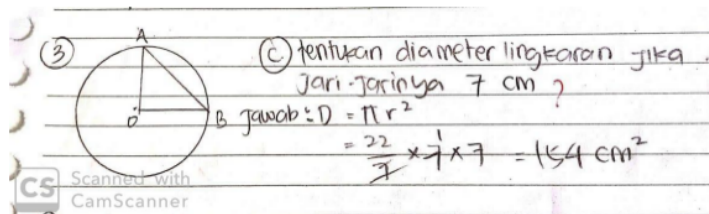 ③ A ⓒ tentukan diameter lingkaran jika
jari-jarinya 7 cm ?
O B Jawab : D = πr²
= 22/7 × 7 × 7 = 154 cm²
1
CS Scanned with
CamScanner